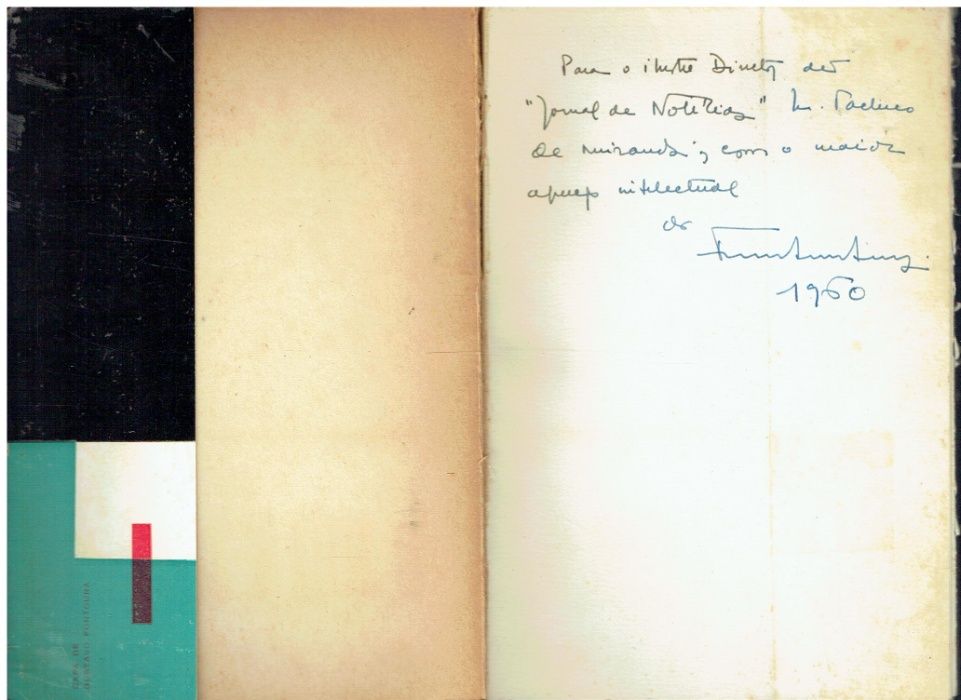 CAPA DE
GUSTAVO FONTOURA
Para o ilustre Director do
"Jornal de Notícias" M. Pacheco
de Miranda, com o maior
apreço intelectual
de
1960